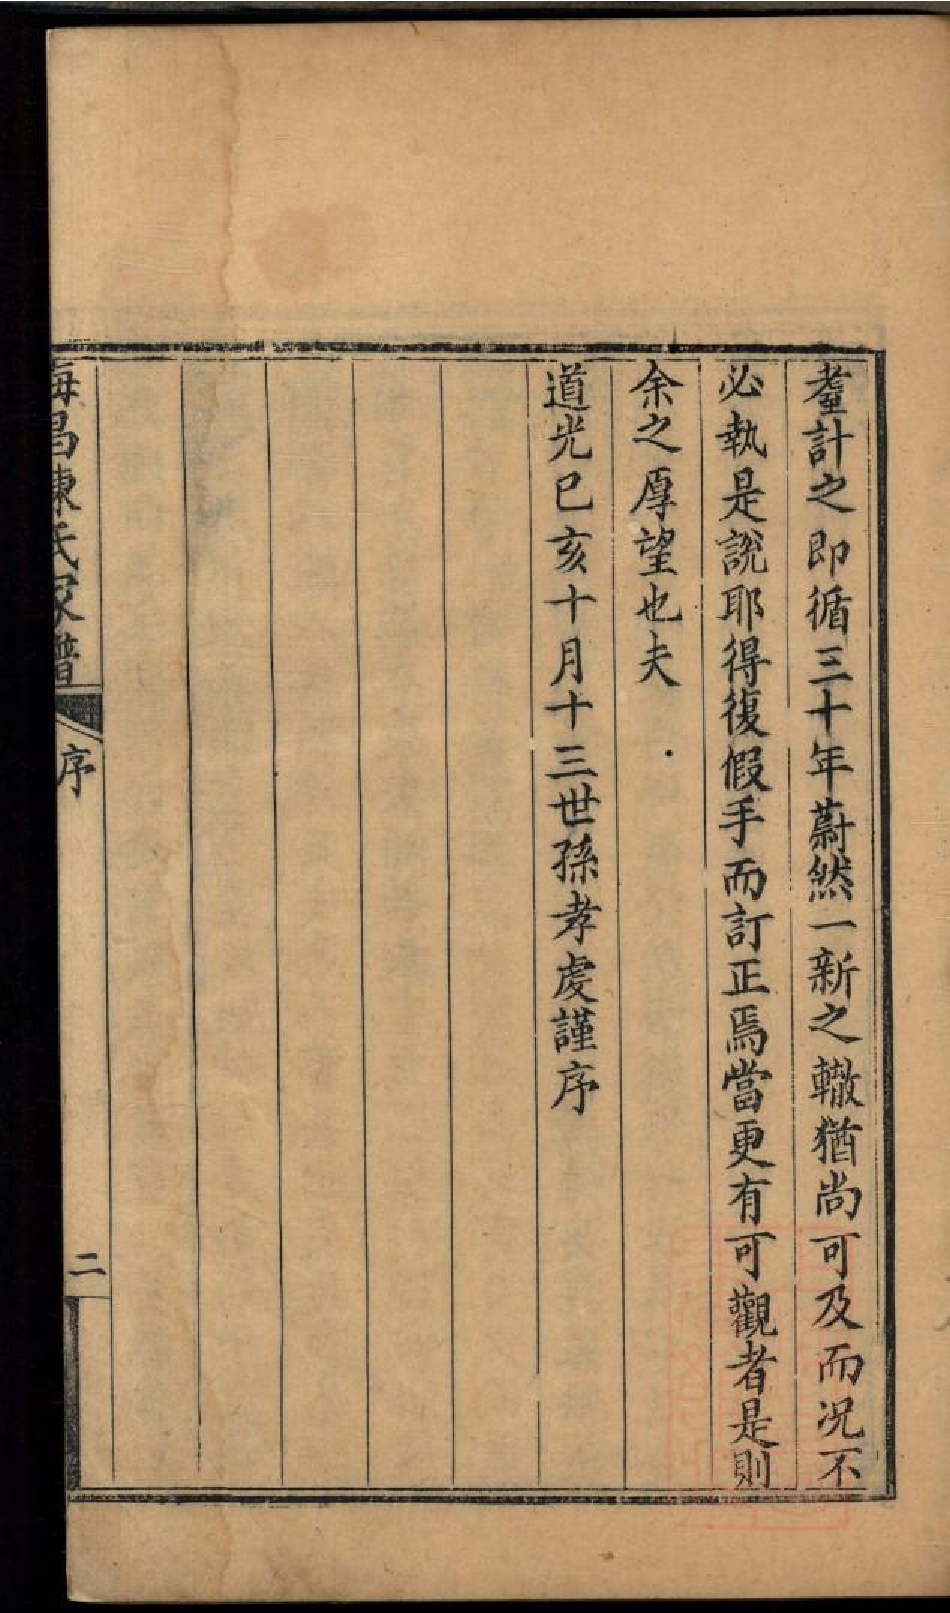 耋計之即循三十年蔚然一新之轍猶尚可及而况不
必執是說耶得復假手而訂正焉當更有可觀者是則
余之厚望也夫
道光己亥十月十三世孫孝虔謹序
海昌陳氏家譜
序
二